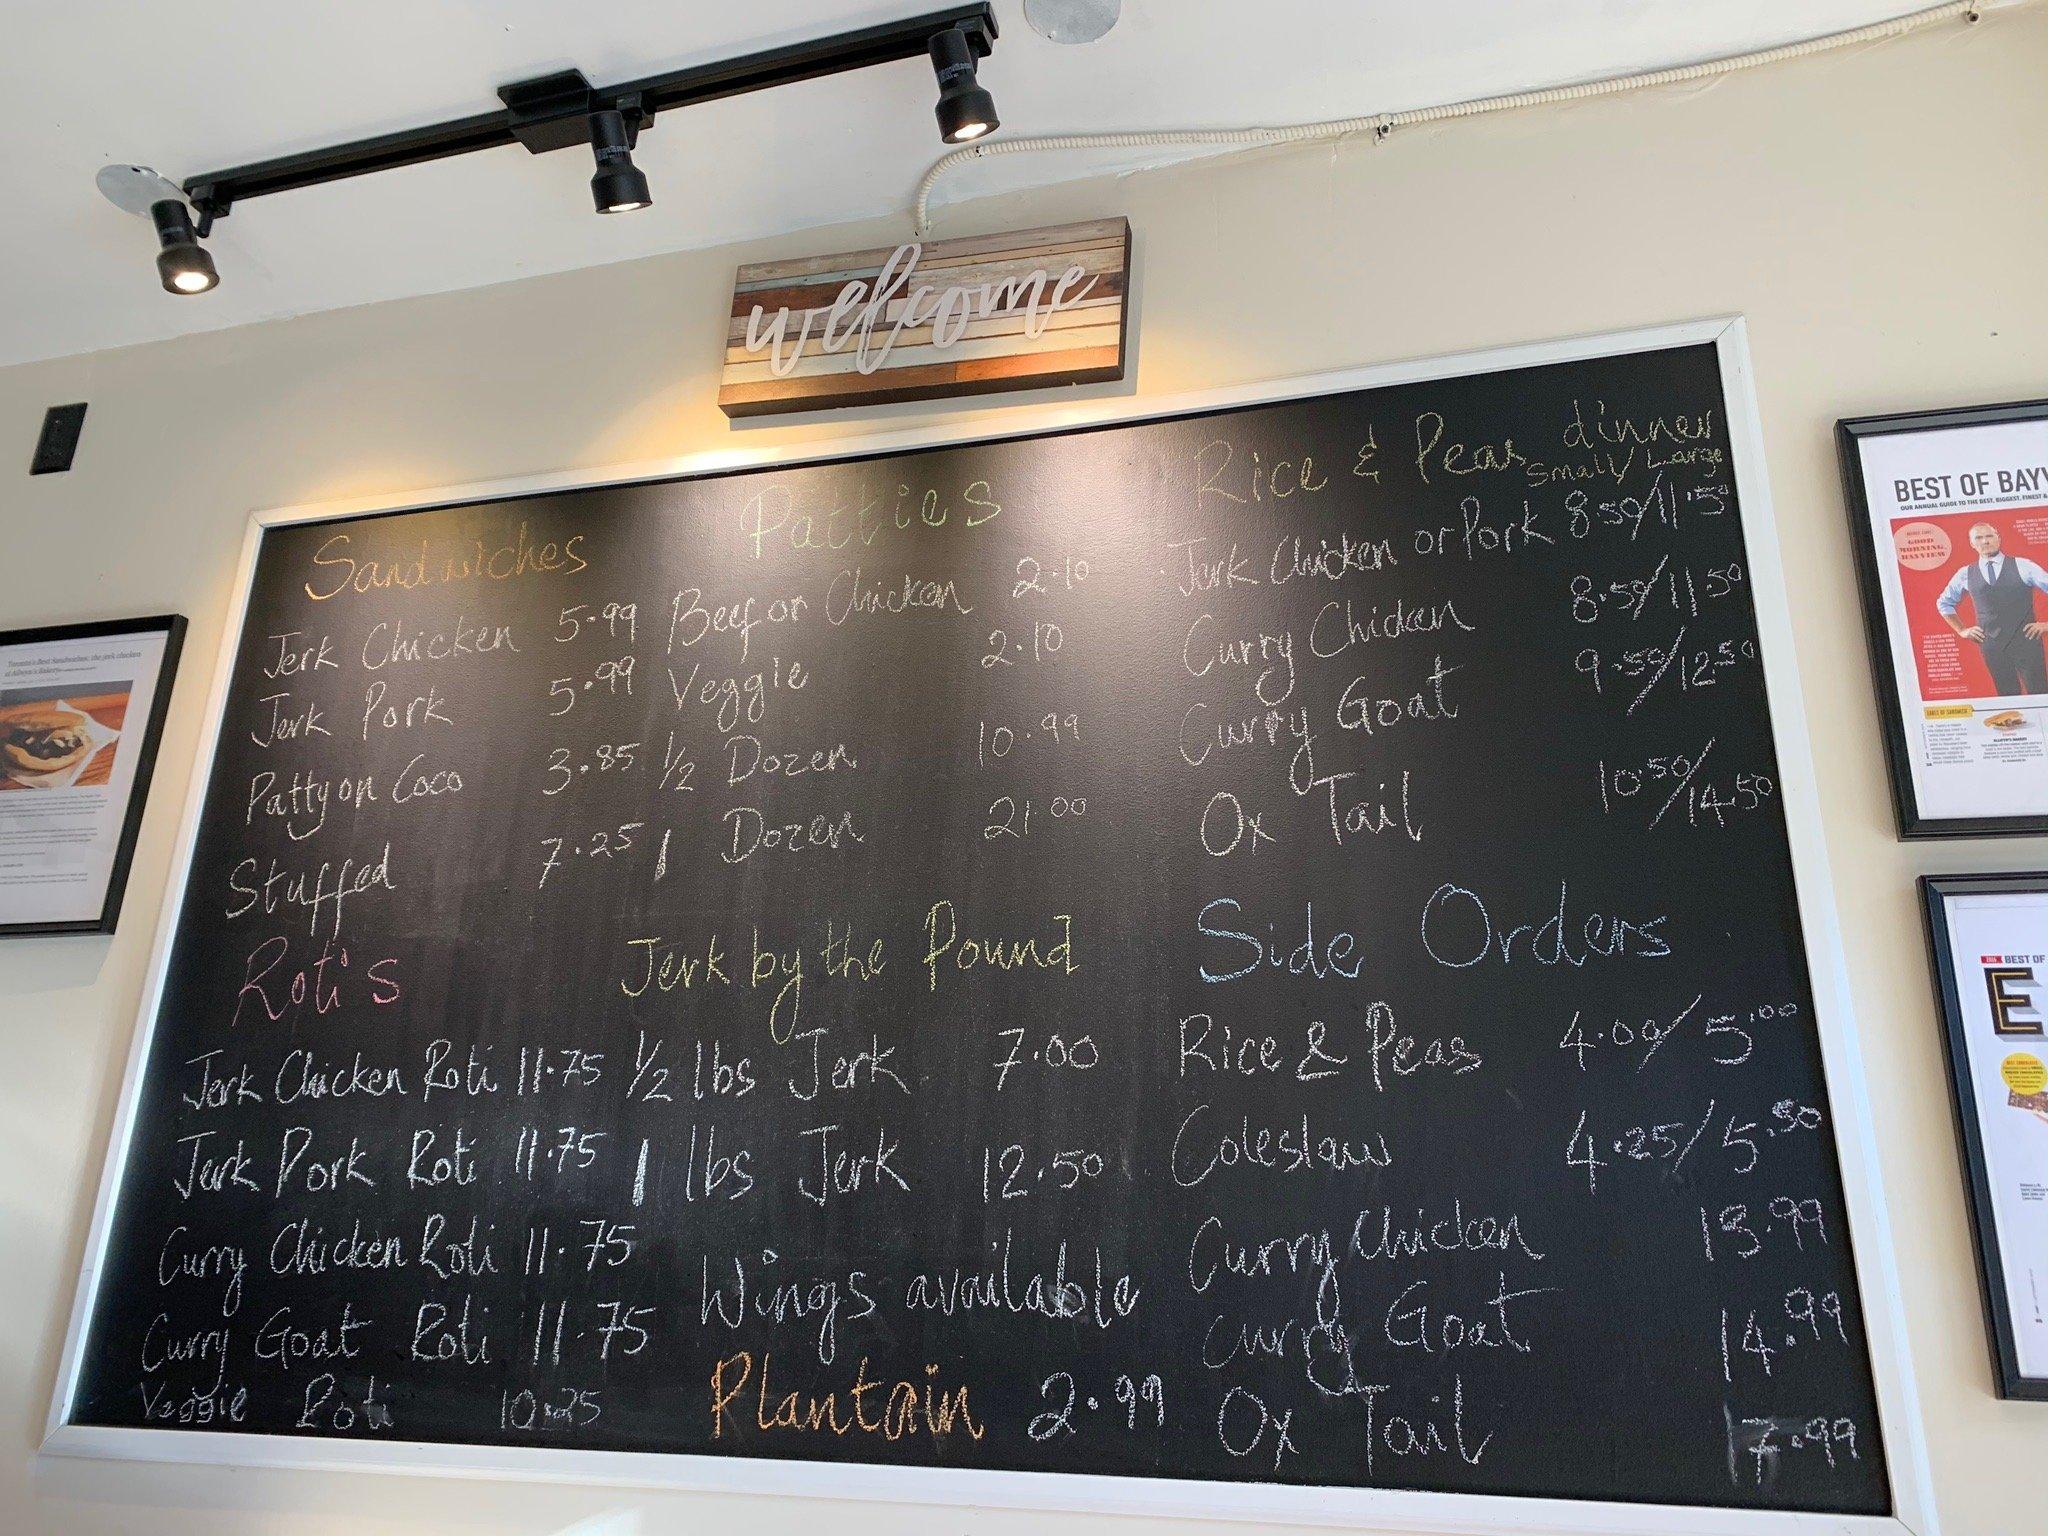 welcome
Sandwiches
Jerk Chicken 5.99
Jerk Pork 5.99
Patty on Coco 3.85
Stuffed 7.25
Roti's
Jerk Chicken Roti 11.75
Jerk Pork Roti 11.75
Curry Chicken Roti 11.75
Curry Goat Roti 11.75
Veggie Roti 10.25
Patties
Beef or Chicken 2.10
Veggie 2.10
1/2 Dozen 10.99
1 Dozen 21.00
Jerk by the Pound
1/2 lbs Jerk 7.00
1 lbs Jerk 12.50
Wings available
Plantain 2.99
Rice & Peas dinner
Small/Large
Jerk Chicken or Pork 8.50/11.50
Curry Chicken 8.50/11.50
Curry Goat 9.50/12.50
Ox Tail 10.50/14.50
Side Orders
Rice & Peas 4.00/5.00
Coleslaw 4.25/5.50
Curry Chicken 13.99
Curry Goat 14.99
Ox Tail 17.99
Toronto's Best Sandwiches: the jerk chicken
BEST OF BAYV
OUR ANNUAL GUIDE TO THE BEST, BIGGEST, FINEST &
GOOD
MORNING,
BAYVIEW
BEST OF
E